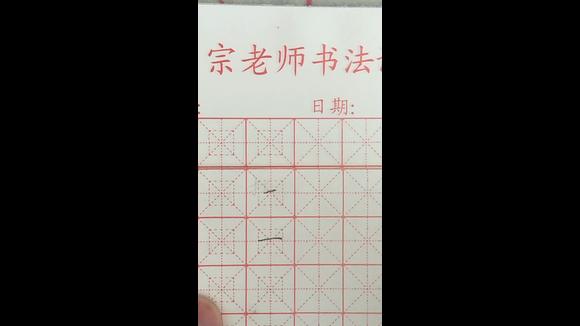 宗老师书法
: 日期:
一
一